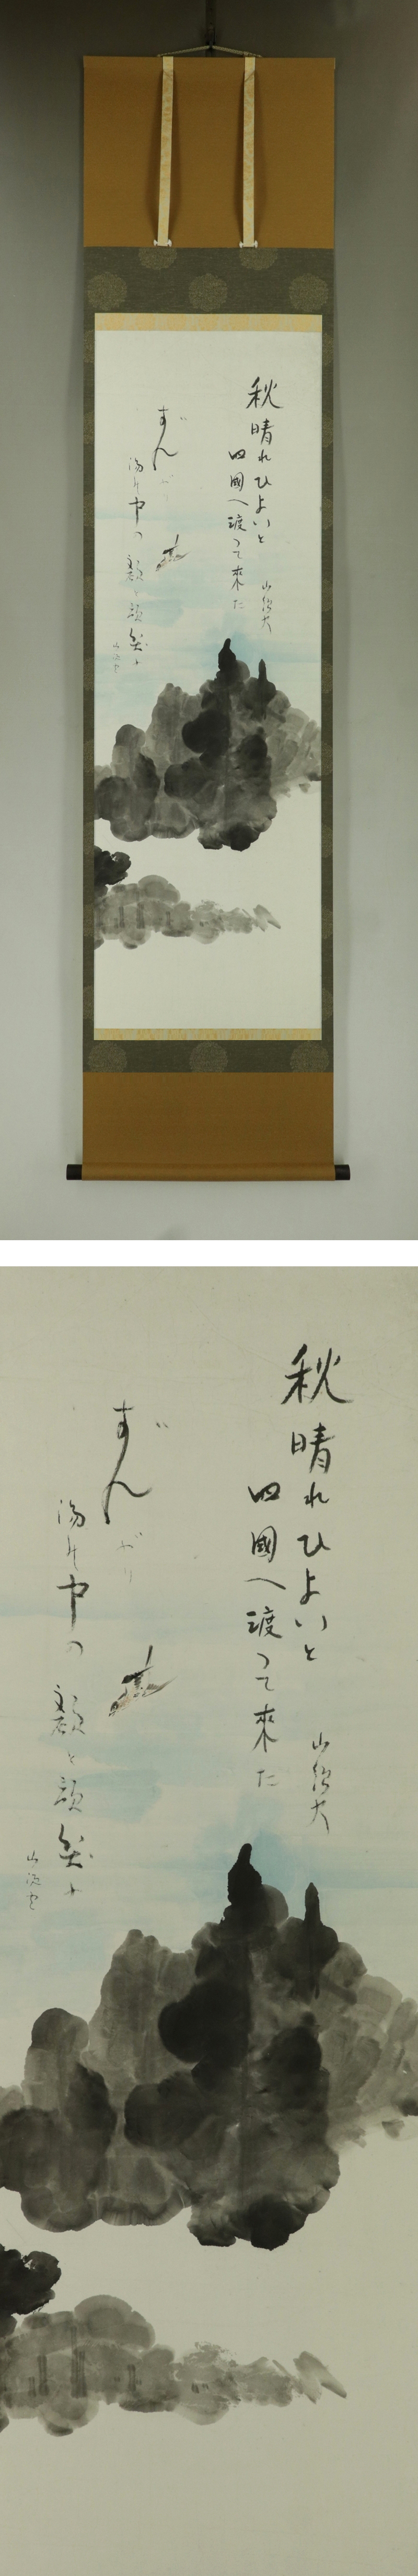 秋晴れひよいと
四國へ渡つて來た
山頭火
ずんぶり
湯の中の顔と顔笑ふ
山頭火
秋晴れひよいと
四國へ渡つて來た
山頭火
ずんぶり
湯の中の顔と顔笑ふ
山頭火